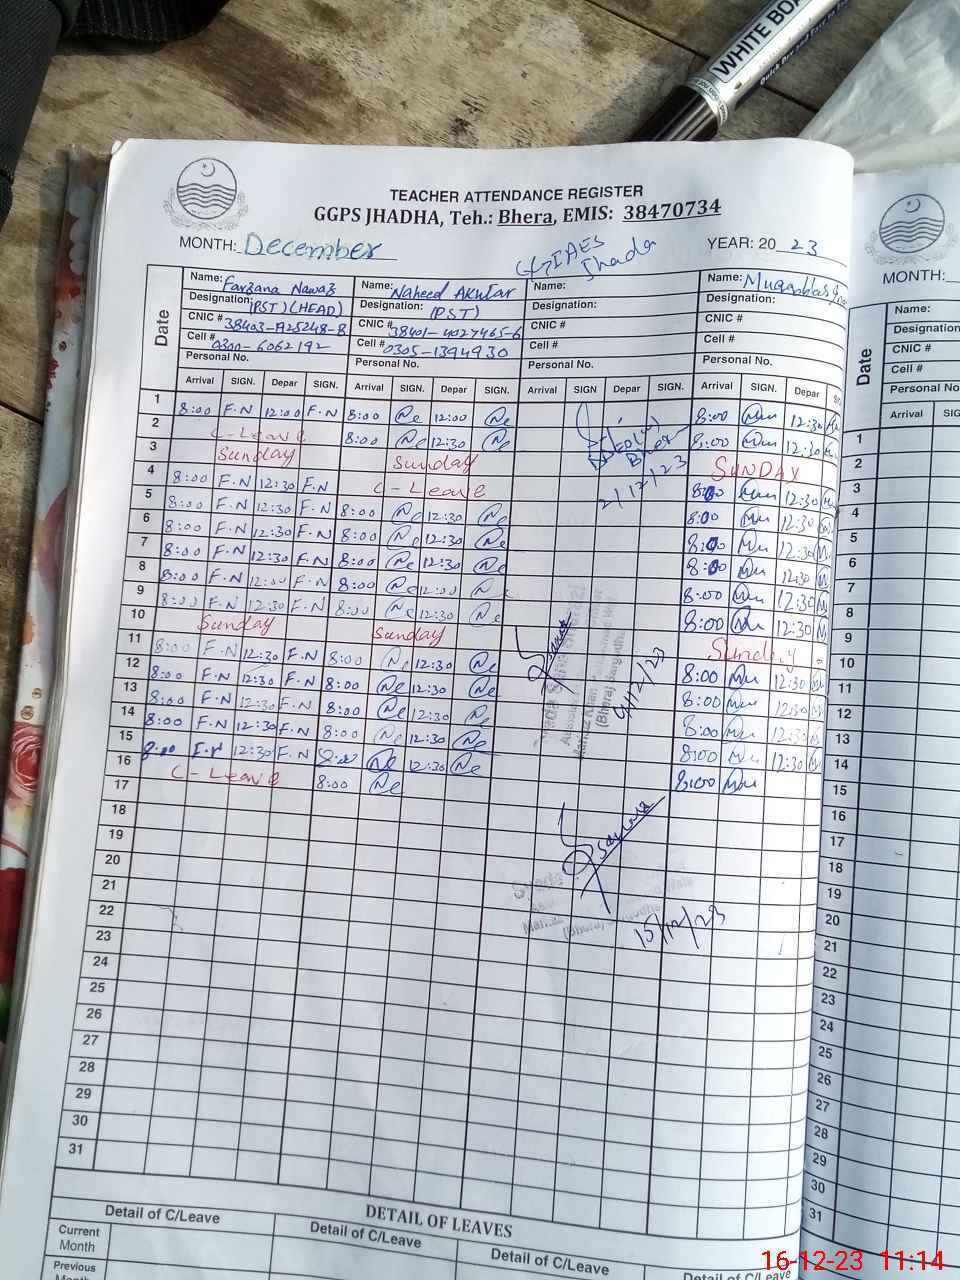 WHITE BOA
TEACHER ATTENDANCE REGISTER
GGPS JHADHA, Teh.: Bhera, EMIS: 38470734
MONTH: December YEAR: 20 23
GGIAES
Jhada
Name: Farzana Nawaz Name: Naheed Akhtar Name: Name:
Designation: (PST)(HEAD) Designation: (PST) Designation: Designation:
CNIC # CNIC # 38401-4027465-6 CNIC # CNIC #
Cell # 0300-6062192 Cell # 0305-1394930 Cell # Cell #
Personal No. Personal No. Personal No. Personal No.
Date
Arrival SIGN. Depar SIGN. Arrival SIGN. Depar SIGN. Arrival SIGN Depar SIGN. Arrival SIGN. Depar
1 8:00 F.N 12:00 F.N 8:00 Ne 12:00 Ne 8:00 Mu 12:30
2 C-Leave 8:00 Ne 12:30 Ne 8:00 Mu 12:30
3 Sunday Sunday SUNDAY
4 8:00 F.N 12:30 F.N C-Leave 8:00 Mu 12:30
5 8:00 F.N 12:30 F.N 8:00 Ne 12:30 Ne 8:00 Mu 12:30
6 8:00 F.N 12:30 F.N 8:00 Ne 12:30 Ne 8:00 Mu 12:30
7 8:00 F.N 12:30 F.N 8:00 Ne 12:30 Ne 8:00 Mu 12:30
8 8:00 F.N 12:00 F.N 8:00 Ne 12:00 N 8:00 Mu 12:30
9 8:00 F.N 12:30 F.N 8:00 Ne 12:30 Ne 8:00 Mu 12:30
10 Sunday Sunday Sunday
11 8:00 F.N 12:30 F.N 8:00 Ne 12:30 Ne 8:00 Mu 12:30
12 8:00 F.N 12:30 F.N 8:00 Ne 12:30 Ne 8:00 Mu 12:30
13 8:00 F.N 12:30 F.N 8:00 Ne 12:30 Ne 8:00 Mu 12:30
14 8:00 F.N 12:30 F.N 8:00 Ne 12:30 Ne 8:00 Mu 12:30
15 8:00 F.N 12:30 F.N 8:00 Ne 12:30 Ne
16 C-Leave 8:00 Ne 8:00 Mu
17
18
19
20
21
22
23
24
25
26
27
28
29
30
31
Bhera
2/12/23
9/12/23
15/12/23
DETAIL OF LEAVES
Detail of C/Leave Detail of C/Leave Detail of C/Leave Detail of C/Leave
Current
Month
Previous
MONTH:
Date
Name:
Designation
CNIC #
Cell #
Personal No
Arrival
1
2
3
4
5
6
7
8
9
10
11
12
13
14
15
16
17
18
19
20
21
22
23
24
25
26
27
28
29
30
31
16-12-23 11:14